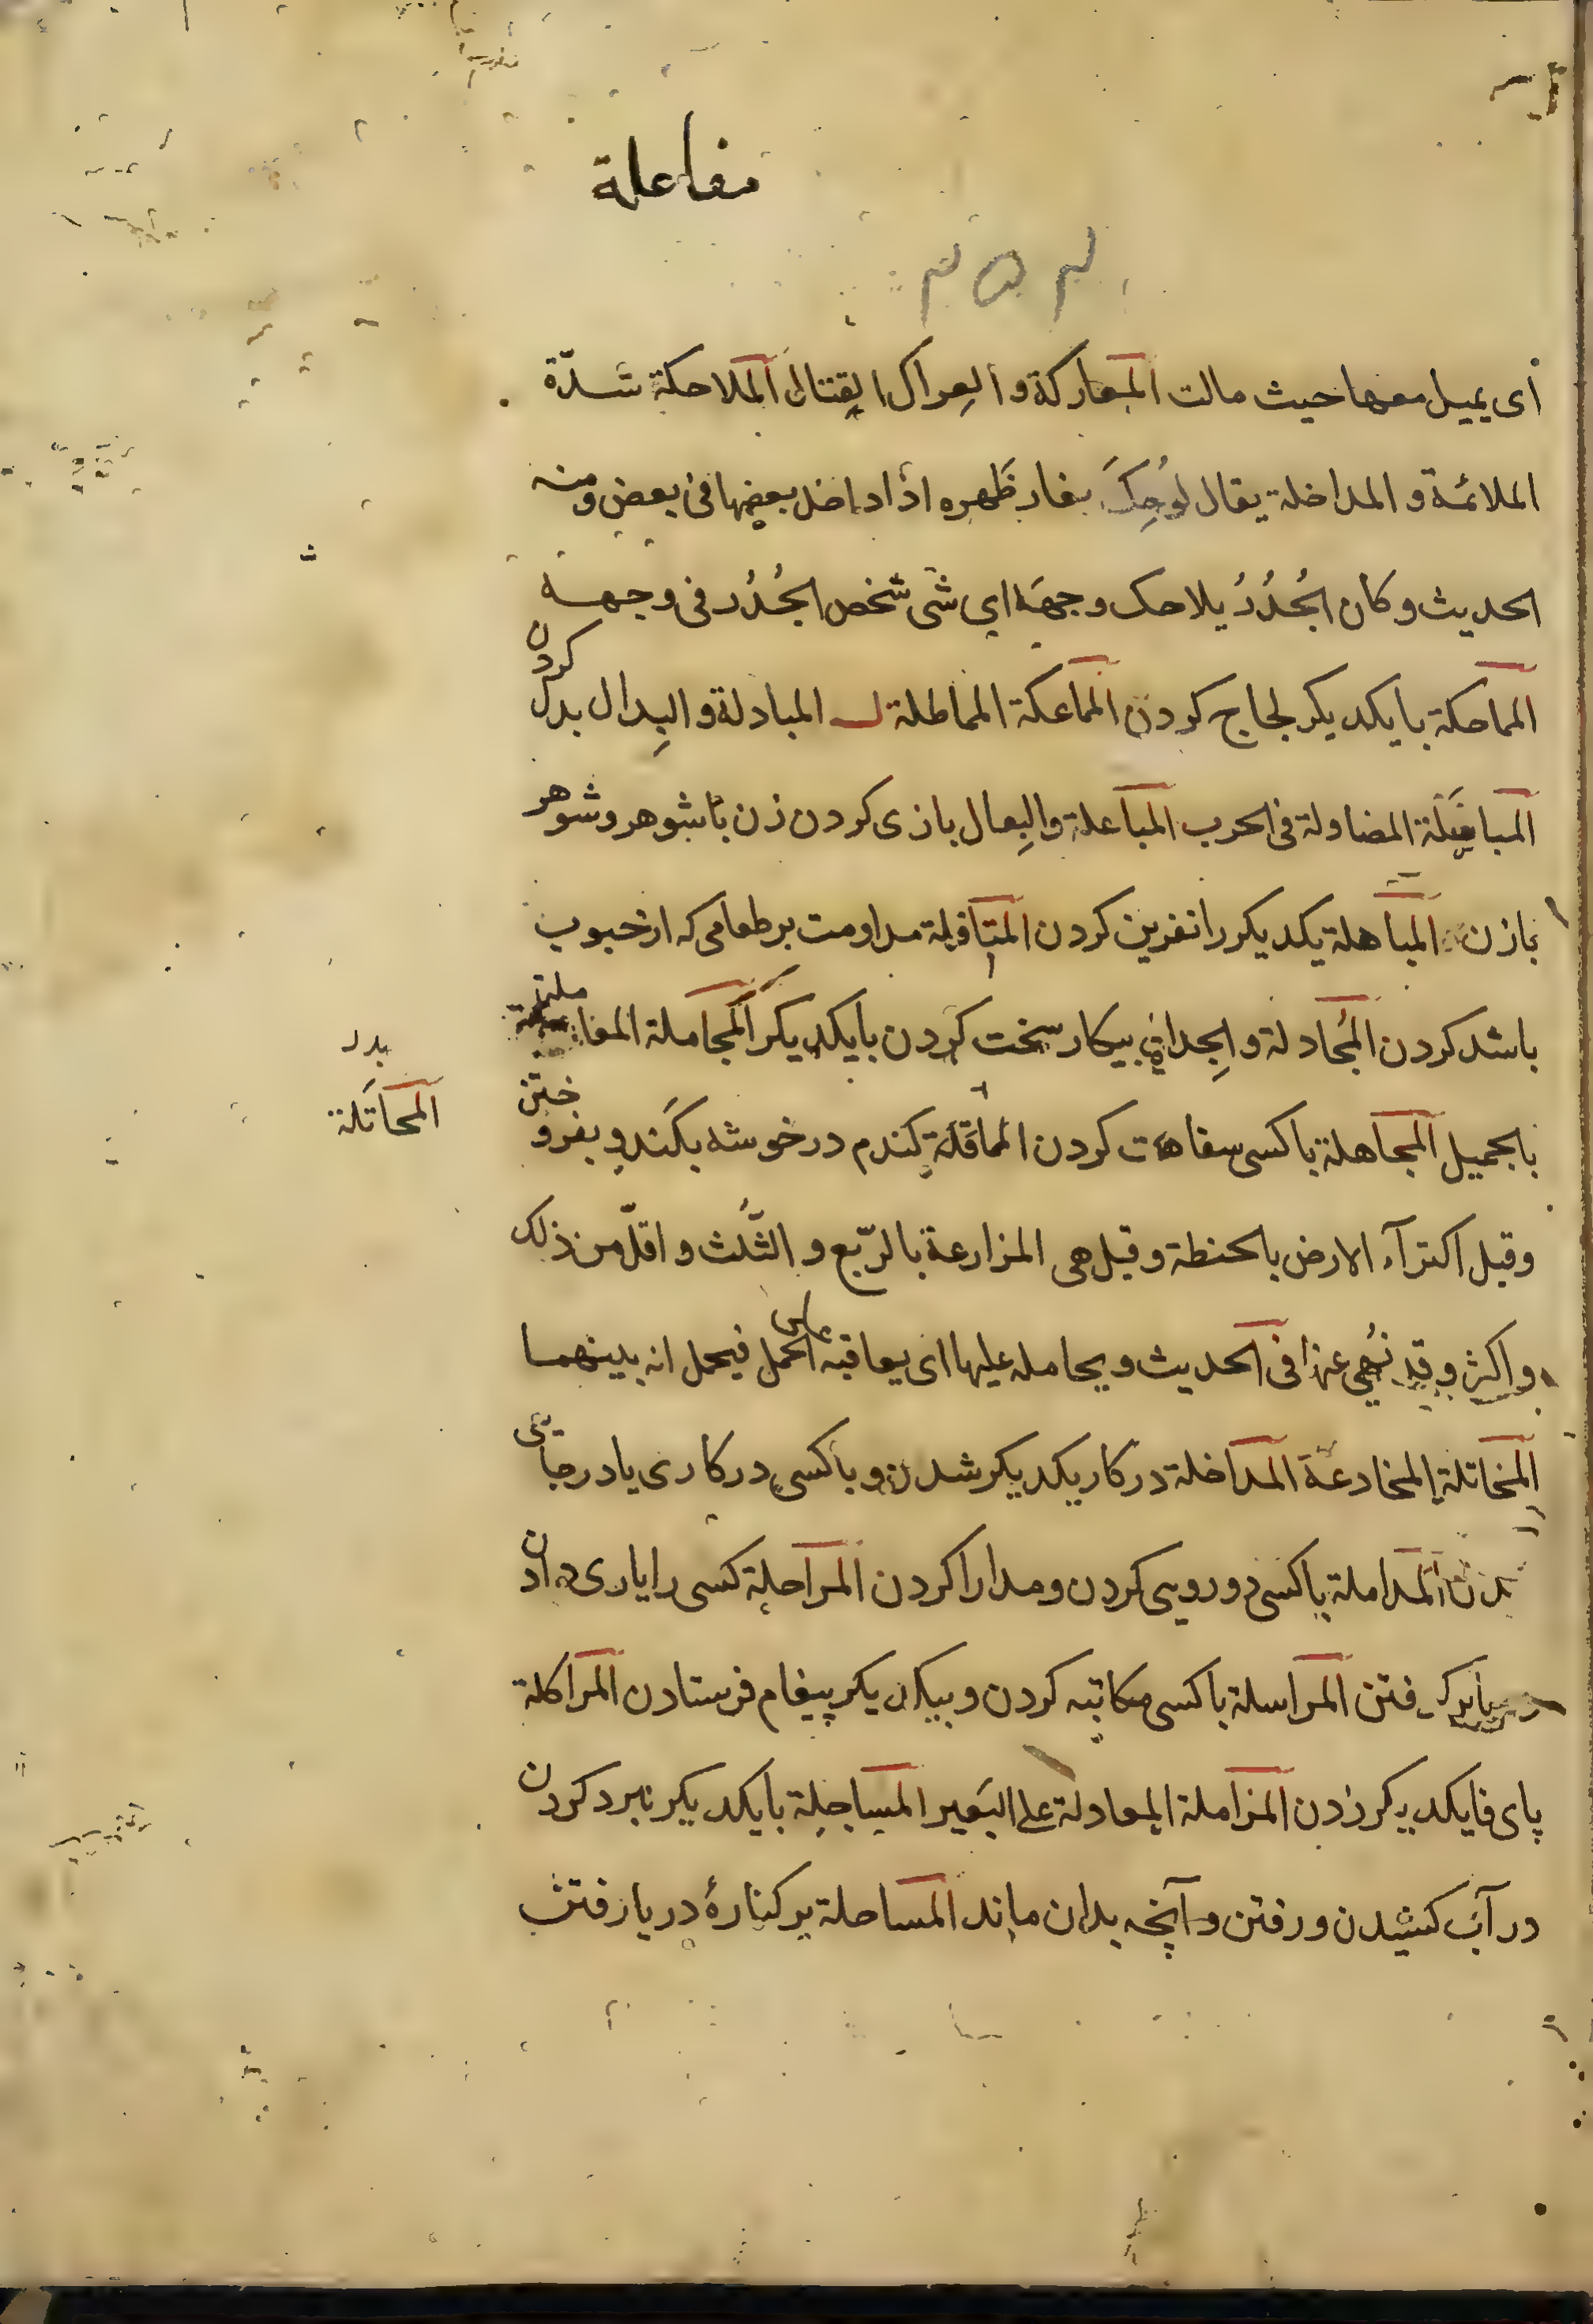 مفاعلة
أى يميل معها حيث مالت المعاركة والعِراك القتال الملاحكة شدّة
الملائمة و المداخلة يقال لُوحِكَ فقار ظَهره اذا داخل بعضها فى بعض ومنه
الحديث وكان الجُدُرُ يلاحك وجهَه اي شى شخص الجُدُر فى وجهه
المماحكة با يكديكر لجاج كردن المماعكة المماطلة ل المبادلة و البِدال بدل كردن
المباسَلَة المصاولة فى الحرب المباعلة والبِعال بازى كردن زن با شوهر و شوهر
با زن المباهلة يكديكر را نفرين كردن المتافلة مداومت بر طعامى كه از حبوب
باشد كردن المُجادلة و الجِدال بيكار سخت كردن با يكديكر المجاملة
بالجميل المجاهلة با كسى سفاهت كردن المحاقَلَة كندم در خوشه بكندم بفروختن
وقيل اكترآء الارض بالحنطة و قيل هى المزارعة بالرّبع و الثّلُث و اقلّ من ذلك
و اكثر و قد نُهى عنها فى الحديث و يحامله عليها اى يعاقبه الحمل فيحمل انه بينهما
المخاتلة المخادعة المداخلة در كار يكديكر شدن و با كسى در كارى يا در جائى
شدن المداملة با كسى دورويى كردن و مدارا كردن المراحلة كسى را يارى دادن
فتن المراسلة با كسى مكاتبه كردن و بيكديكر پيغام فرستادن المراكلة
پاى فا يكديكر زدن المزاملة المعادلة على البَعير المساجلة با يكديكر نبرد كردن
در آب كشيدن و رفتن و آنچه بدان ماند المساحلة بر كنارهٔ دريا رفتن
بدل
المحاتَلة